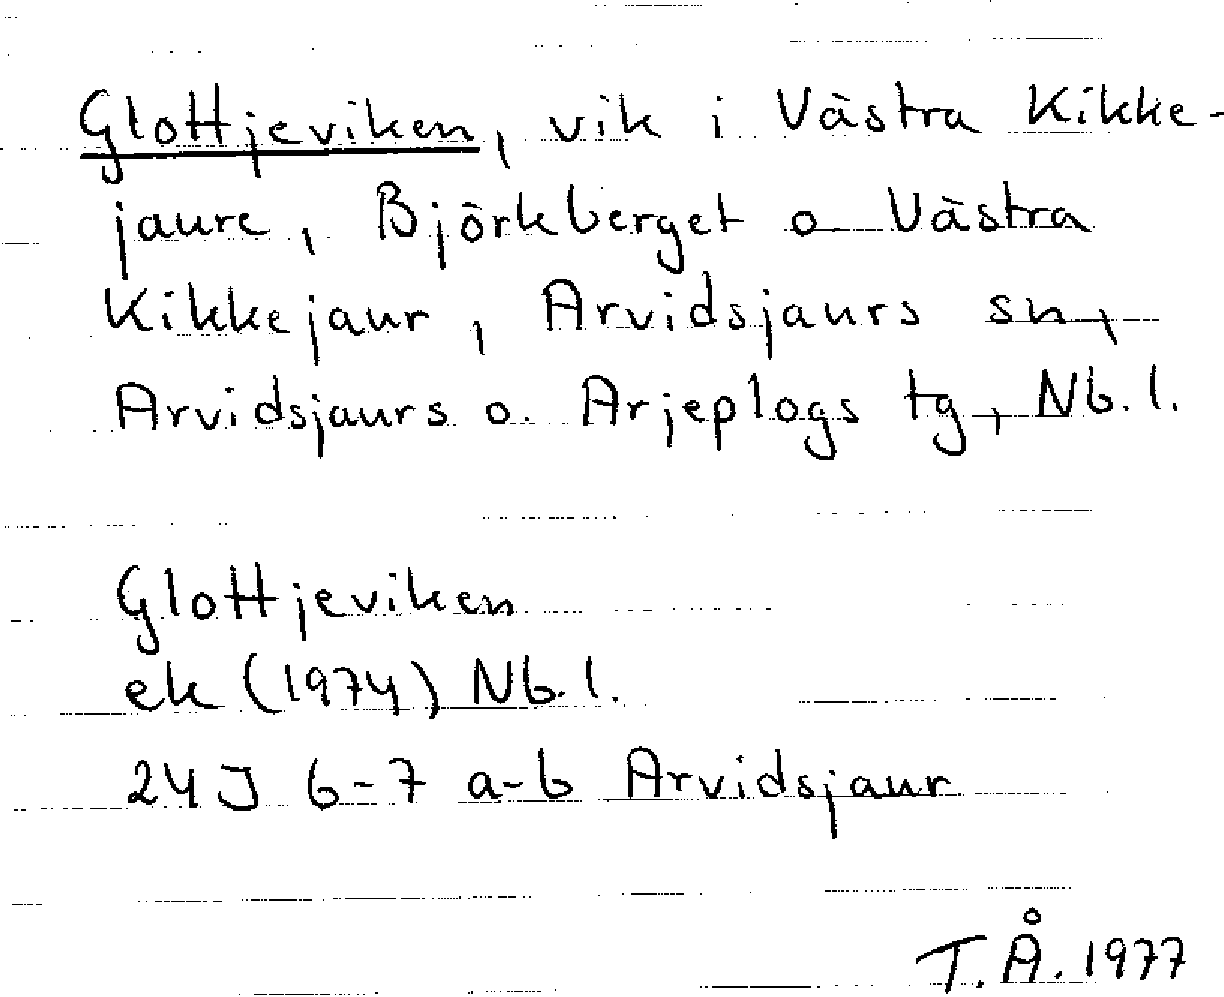 Glottjeviken, vik i Västra Kikke-
jaure, Björkberget o Västra
Kikkejaur, Arvidsjaurs sn,
Arvidsjaurs o. Arjeplogs tg, Nb.l.
Glottjeviken
ek (1974) Nb.l.
24J 6-7 a-b Arvidsjaur
T.Å. 1977